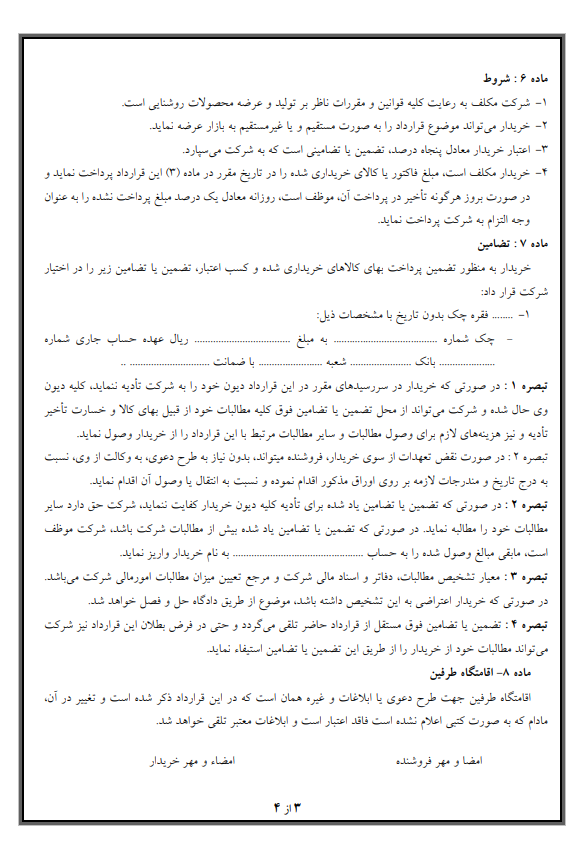 ماده ۶ : شروط
۱- شرکت مکلف به رعایت کلیه قوانین و مقررات ناظر بر تولید و عرضه محصولات روشنایی است.
۲- خریدار می‌تواند موضوع قرارداد را به صورت مستقیم و یا غیرمستقیم به بازار عرضه نماید.
۳- اعتبار خریدار معادل پنجاه درصد، تضمین یا تضامینی است که به شرکت می‌سپارد.
۴- خریدار مکلف است، مبلغ فاکتور یا کالای خریداری شده را در تاریخ مقرر در ماده (۳) این قرارداد پرداخت نماید و
در صورت بروز هرگونه تأخیر در پرداخت آن، موظف است، روزانه معادل یک درصد مبلغ پرداخت نشده را به عنوان
وجه التزام به شرکت پرداخت نماید.
ماده ۷ : تضامین
خریدار به منظور تضمین پرداخت بهای کالاهای خریداری شده و کسب اعتبار، تضمین یا تضامین زیر را در اختیار
شرکت قرار داد:
۱- ........ فقره چک بدون تاریخ با مشخصات ذیل:
- چک شماره ..................................... به مبلغ .................................. ریال عهده حساب جاری شماره
.................... بانک ...................... شعبه ....................... با ضمانت ............................ ..
تبصره ۱ : در صورتی که خریدار در سررسیدهای مقرر در این قرارداد دیون خود را به شرکت تأدیه ننماید، کلیه دیون
وی حال شده و شرکت می‌تواند از محل تضمین یا تضامین فوق کلیه مطالبات خود از قبیل بهای کالا و خسارت تأخیر
تأدیه و نیز هزینه‌های لازم برای وصول مطالبات و سایر مطالبات مرتبط با این قرارداد را از خریدار وصول نماید.
تبصره ۲ : در صورت نقض تعهدات از سوی خریدار، فروشنده میتواند، بدون نیاز به طرح دعوی، به وکالت از وی، نسبت
به درج تاریخ و مندرجات لازمه بر روی اوراق مذکور اقدام نموده و نسبت به انتقال یا وصول آن اقدام نماید.
تبصره ۲ : در صورتی که تضمین یا تضامین یاد شده برای تأدیه کلیه دیون خریدار کفایت ننماید، شرکت حق دارد سایر
مطالبات خود را مطالبه نماید. در صورتی که تضمین یا تضامین یاد شده بیش از مطالبات شرکت باشد، شرکت موظف
است، مابقی مبالغ وصول شده را به حساب .............................................. به نام خریدار واریز نماید.
تبصره ۳ : معیار تشخیص مطالبات، دفاتر و اسناد مالی شرکت و مرجع تعیین میزان مطالبات امورمالی شرکت می‌باشد.
در صورتی که خریدار اعتراضی به این تشخیص داشته باشد، موضوع از طریق دادگاه حل و فصل خواهد شد.
تبصره ۴ : تضمین یا تضامین فوق مستقل از قرارداد حاضر تلقی می‌گردد و حتی در فرض بطلان این قرارداد نیز شرکت
می‌تواند مطالبات خود از خریدار را از طریق این تضمین یا تضامین استیفاء نماید.
ماده ۸- اقامتگاه طرفین
اقامتگاه طرفین جهت طرح دعوی یا ابلاغات و غیره همان است که در این قرارداد ذکر شده است و تغییر در آن،
مادام که به صورت کتبی اعلام نشده است فاقد اعتبار است و ابلاغات معتبر تلقی خواهد شد.
امضا و مهر فروشنده امضاء و مهر خریدار
۳ از ۴